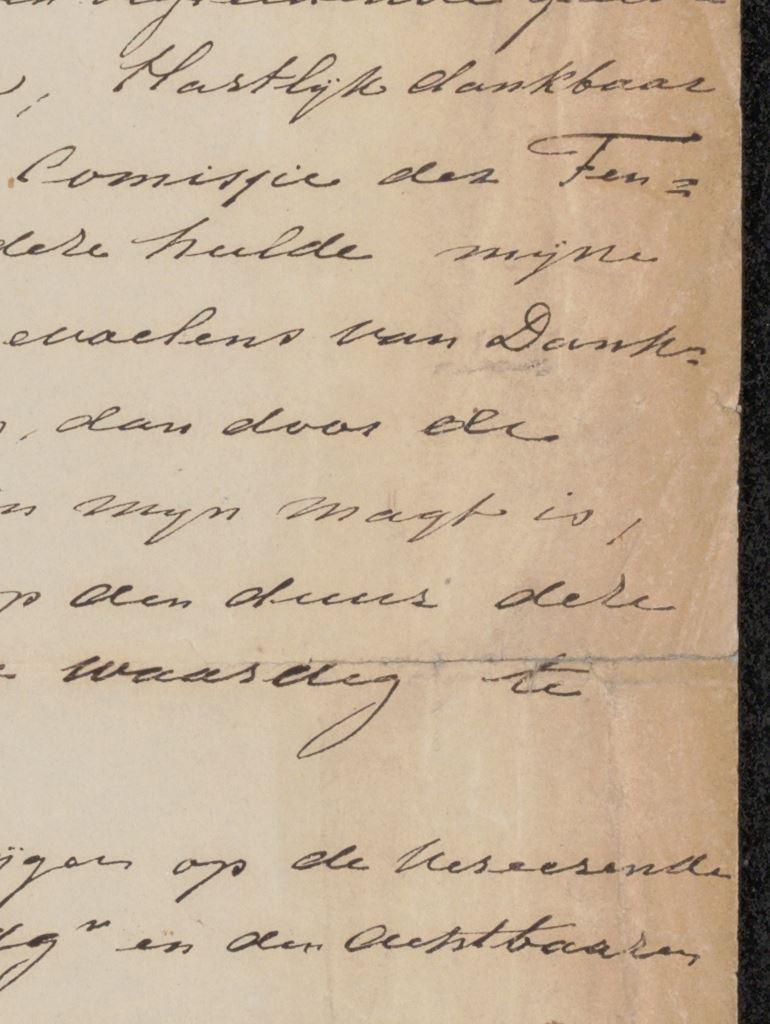 , Hartlijk dankbaar
Comissie der Ten=
deze hulde mijne
gevoelens van Dank=
, dan door de
in mijn magt is,
op den duur deze
waardig te
op de vereerende
en den Achtbaaren